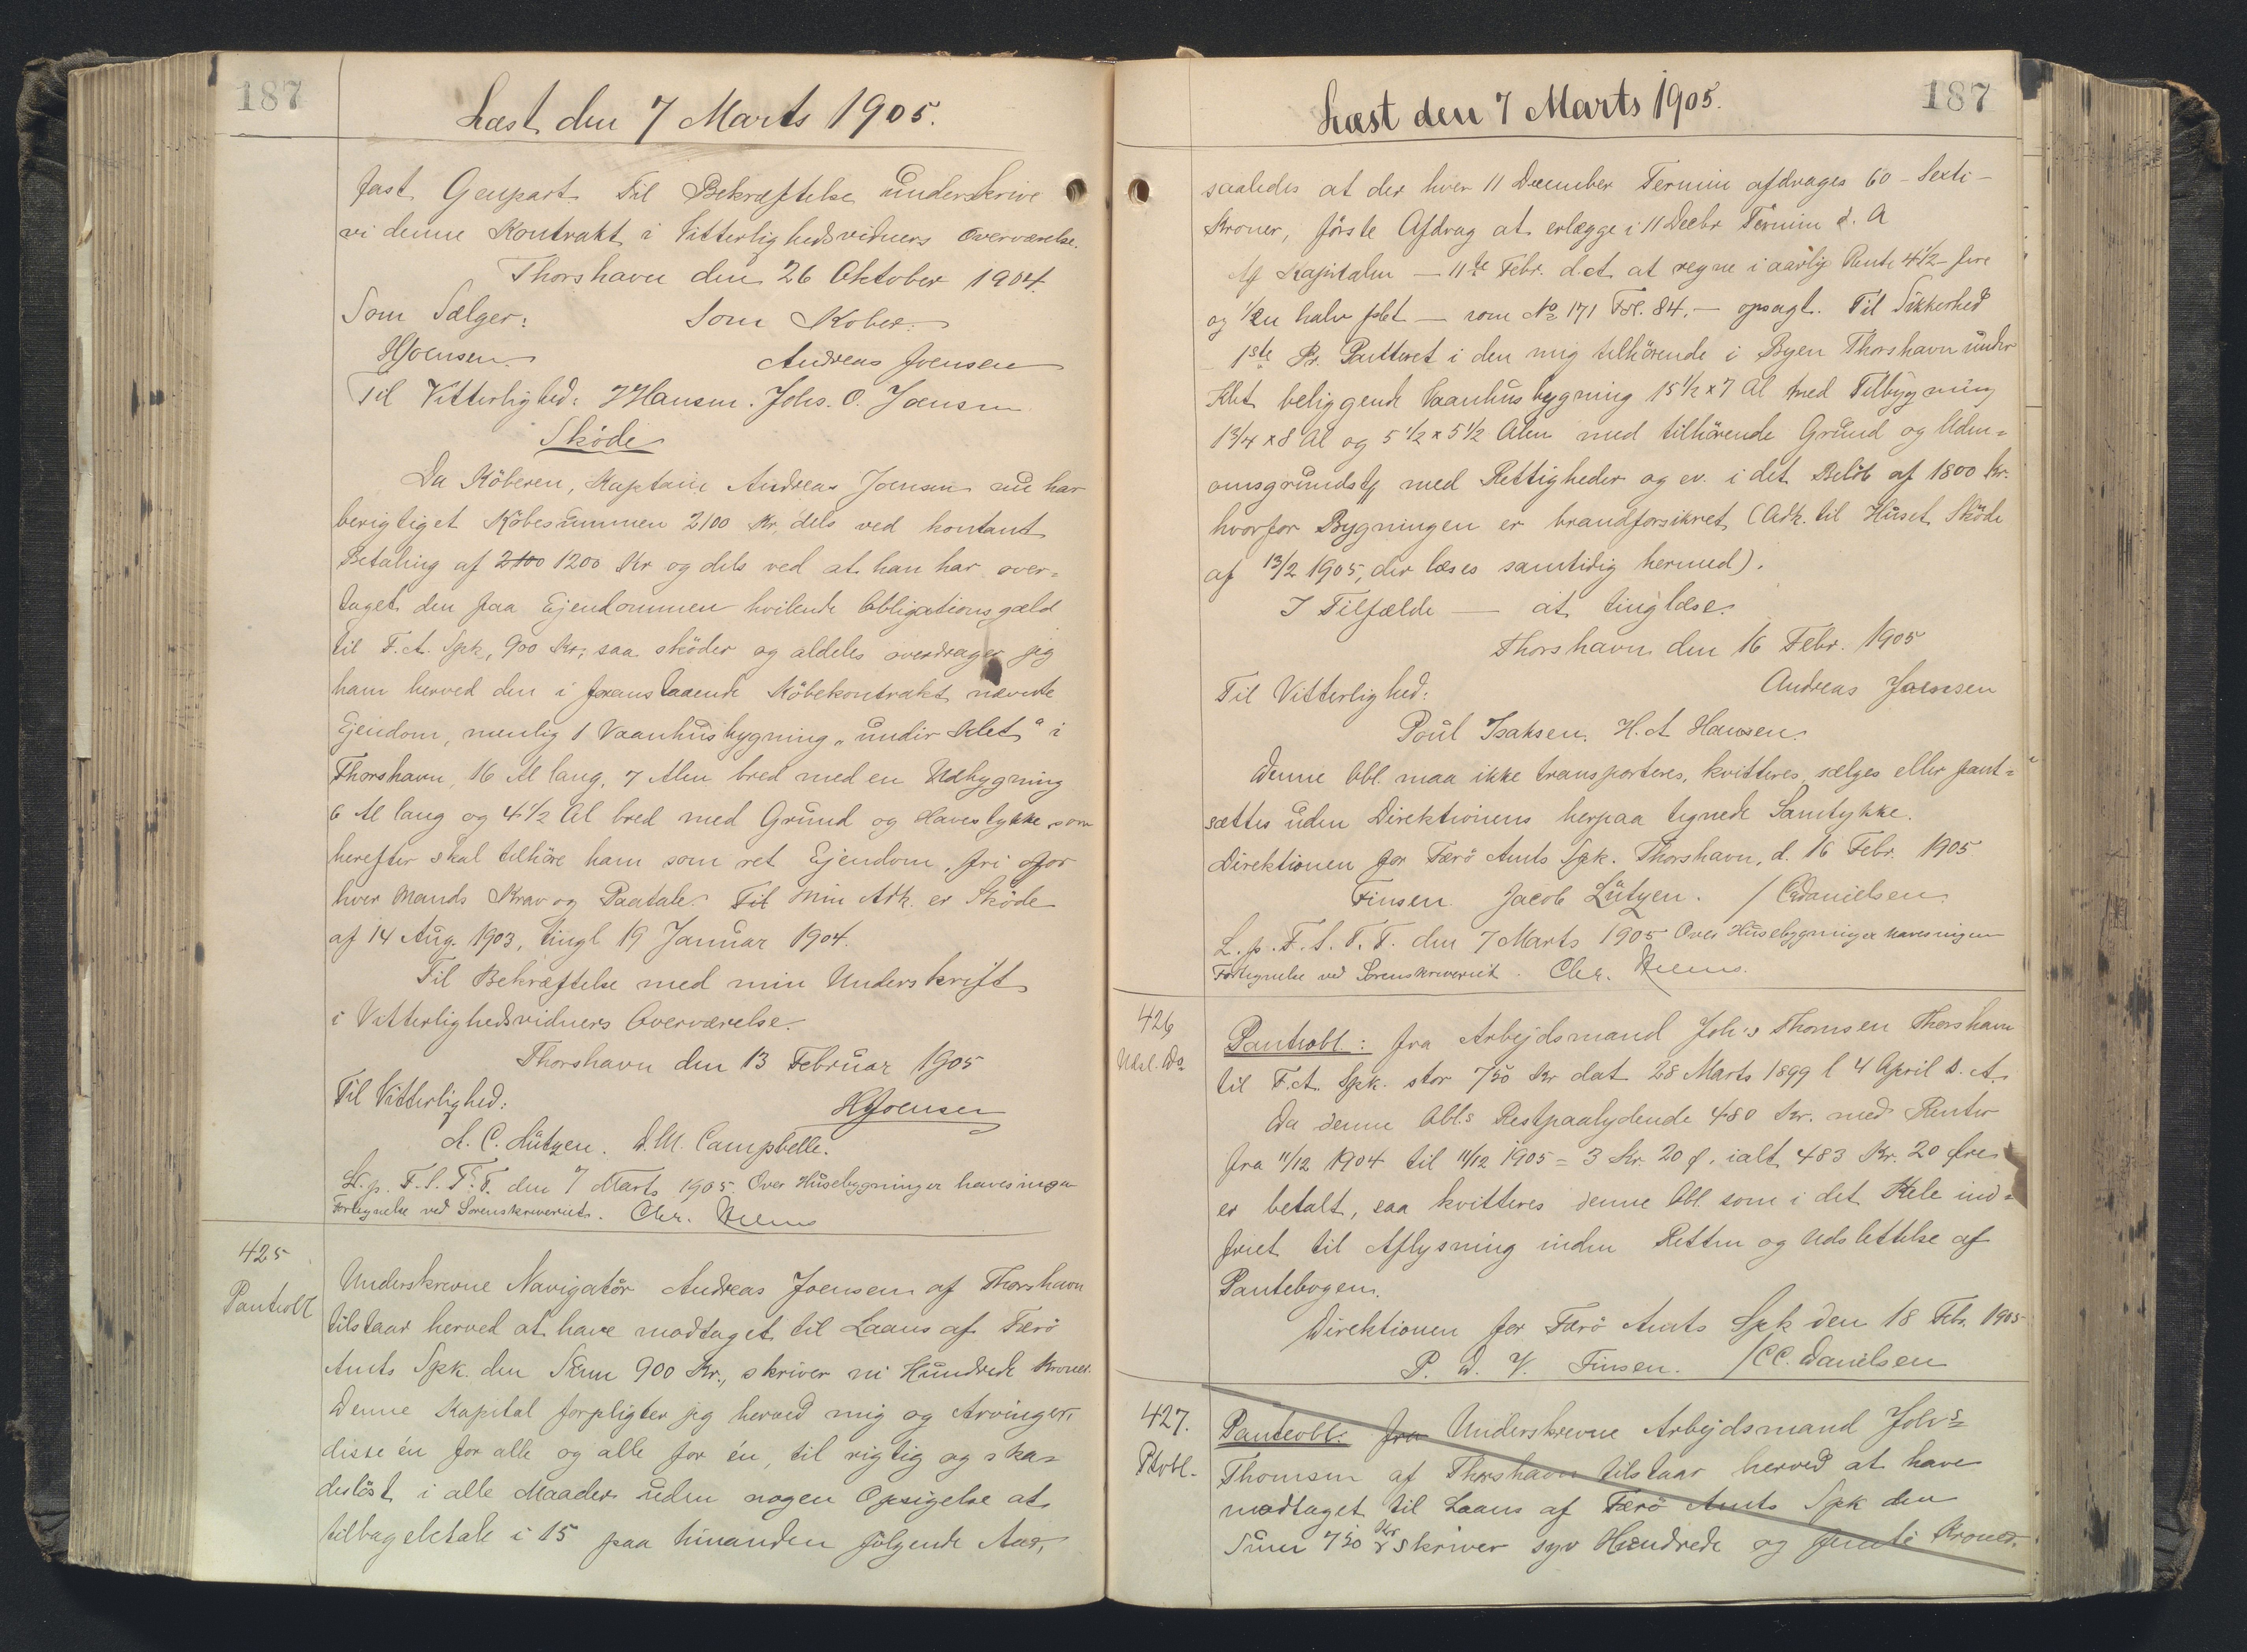 187
Læst den 7 Marts 1905.
fast Genpart. Til Bekræftelse underskrive
vi denne Kontrakt i Vitterlighedsvidners Overværelse.
Thorshavn den 26 Oktober 1904.
Som Sælger: Som Køber:
HJoensen Andreas Joensen
Til Vitterlighed: JHansen. Johs. O. Joensen
Sköde
Da Köberen, Kaptain Andreas Joensen nu har
berigtiget Köbesummen 2100 Kr, dels ved kontant
Betaling af 2100 1200 Kr og dels ved at han har over-
taget den paa Ejendommen hvilende Obligationsgæld
til F. A. Spk, 900 Kr; saa sköder og aldeles overdrager jeg
ham herved den i foranstaaende Köbekontrakt nævnte
Ejendom, nemlig 1 Vaanhusbygning „undir Klet" i
Thorshavn, 16 Al lang, 7 Alen bred med en Udbygning
6 Al lang og 4 1/2 Al bred med Grund og Havestykke, som
herefter skal tilhöre ham som ret Ejendom, fri for
hver Mands Krav og Paatale. Til Min Adk. er Sköde
af 14 Aug. 1903, tingl 19 Januar 1904.
Til Bekræftelse med min Underskrift
i Vitterlighedsvidners Overværelse.
Thorshavn den 13 Februar 1905
Til Vitterlighed: HJoensen
A. C. Lützen. D. M. Campbelle.
L. p. F. S. T. T. den 7 Marts 1905. Over Husebygninger haves ingen
Fortegnelse ved Sorenskriveriet. Chr.
425
Pantobl
Underskrevne Navigatör Andreas Joensen af Thorshavn
tilstaar herved at have modtaget til Laans af Færö
Amts Spk. den Sum 900 Kr., skriver ni Hundrede Kroner.
Denne Kapital forpligter jeg herved mig og Arvinger,
disse én for alle og alle for én, til rigtig og ska-
deslöst i alle Maader uden nogen Opsigelse at
tilbagebetale i 15 paa hinanden fölgende Aar,
187
Læst den 7 Marts 1905.
saaledes at der hver 11 December Termin afdrages 60 - Sexti -
Kroner, förste Afdrag at erlægge i 11 Decbr Termin d. A
Af Kapitalen — 11te Febr. d. A at regne i aarlig Rente 4 1/2 - fire
og 1/2 en halv pCt — som No 171 Fol. 84. — opsagt. Til Sikkerhed
1ste Pr. Panteret i den mig tilhörende i Byen Thorshavn under
Klet beliggende Vaanhusbygning 15 1/2 x 7 Al med Tilbygning
13/4 x 8 Al og 5 1/2 x 5 1/2 Alen med tilhörende Grund og Uden-
omsgrundstk med Rettigheder og ev. i det Belöb af 1800 Kr.
hvorfor Bygningen er brandforsikret (Adk. til Huset Sköde
af 13/2 1905, der læses samtidig hermed).
I Tilfælde — at tinglæse.
Thorshavn den 16 Febr. 1905
Til Vitterlighed: Andreas Joensen
Poul Isaksen. H. A Hansen.
Denne Obl. maa ikke transporteres, kvitteres, sælges eller pant-
sættes uden Direktionens herpaa tegnede Samtykke.
Direktionen for Færö Amts Spk. Thorshavn, d. 16 Febr. 1905
Finsen. Jacob Lützen. / CCDanielsen
L. p. F. S. T. T. den 7 Marts 1905 Over Husebygninger haves ingen
Fortegnelse ved Sorenskriveriet. Chr.
426
Udsl. Do
Pantobl.: fra Arbejdsmand Joh's Thomsen Thorshavn
til F. A. Spk. stor 750 Kr dat 28 Marts 1899 l 4 April s. A.
Da denne Obl.s Restpaalydende 480 Kr. med Renter
fra 11/12 1904 til 11/12 1905 = 3 Kr. 20 Ø. ialt 483 Kr. 20 Øre
er betalt, saa kvitteres denne Obl som i det Hele ind-
friet til Aflysning inden Retten og Udslettelse af
Pantebogen.
Direktionen for Færö Amts Spk den 18 Feb. 1905
P. D. V. Finsen. /CC. Danielsen
427.
Ptobl.
Panteobl: fra Underskrevne Arbejdsmand Johs
Thomsen af Thorshavn tilstaar herved at have
modtaget til Laans af Færö Amts Spk den
Sum 750 Kr skriver syv Hundrede og femti Kroner.